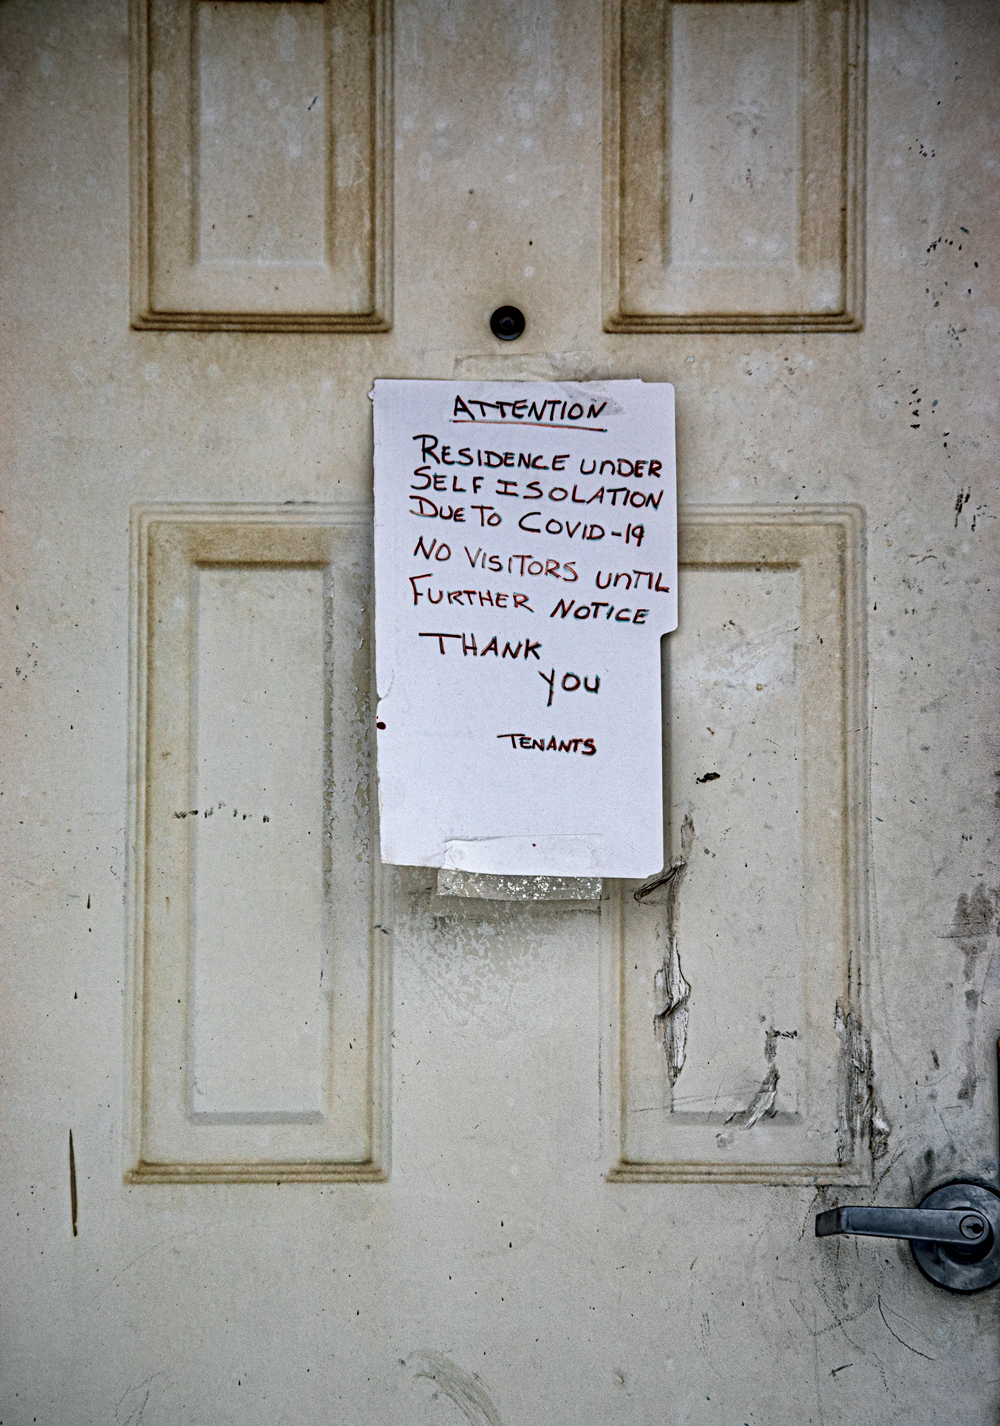 ATTENTION
RESIDENCE UNDER
SELF ISOLATION
DUE TO COVID-19
NO VISITORS UNTIL
FURTHER NOTICE
THANK
YOU
TENANTS